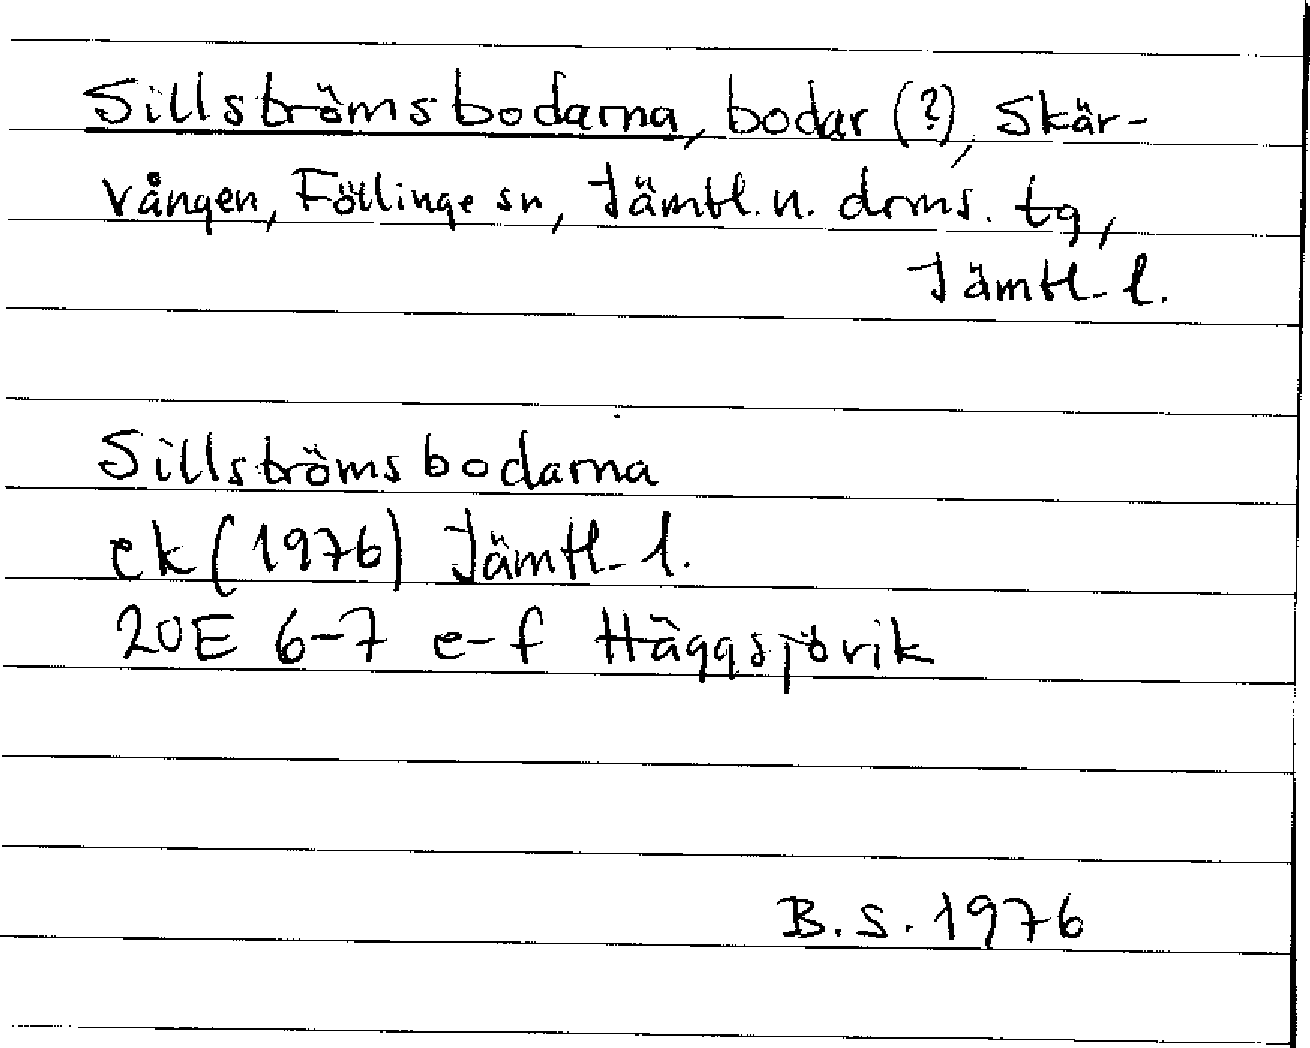 Sillströmsbodarna, bodar (?), Skär-
vången, Föllinge sn, Jämtl. n. doms. tg,
Jämtl. l.
Sillströmsbodarna
ek (1976) Jämtl. l.
20E 6-7 e-f Häggsjövik
B.S. 1976